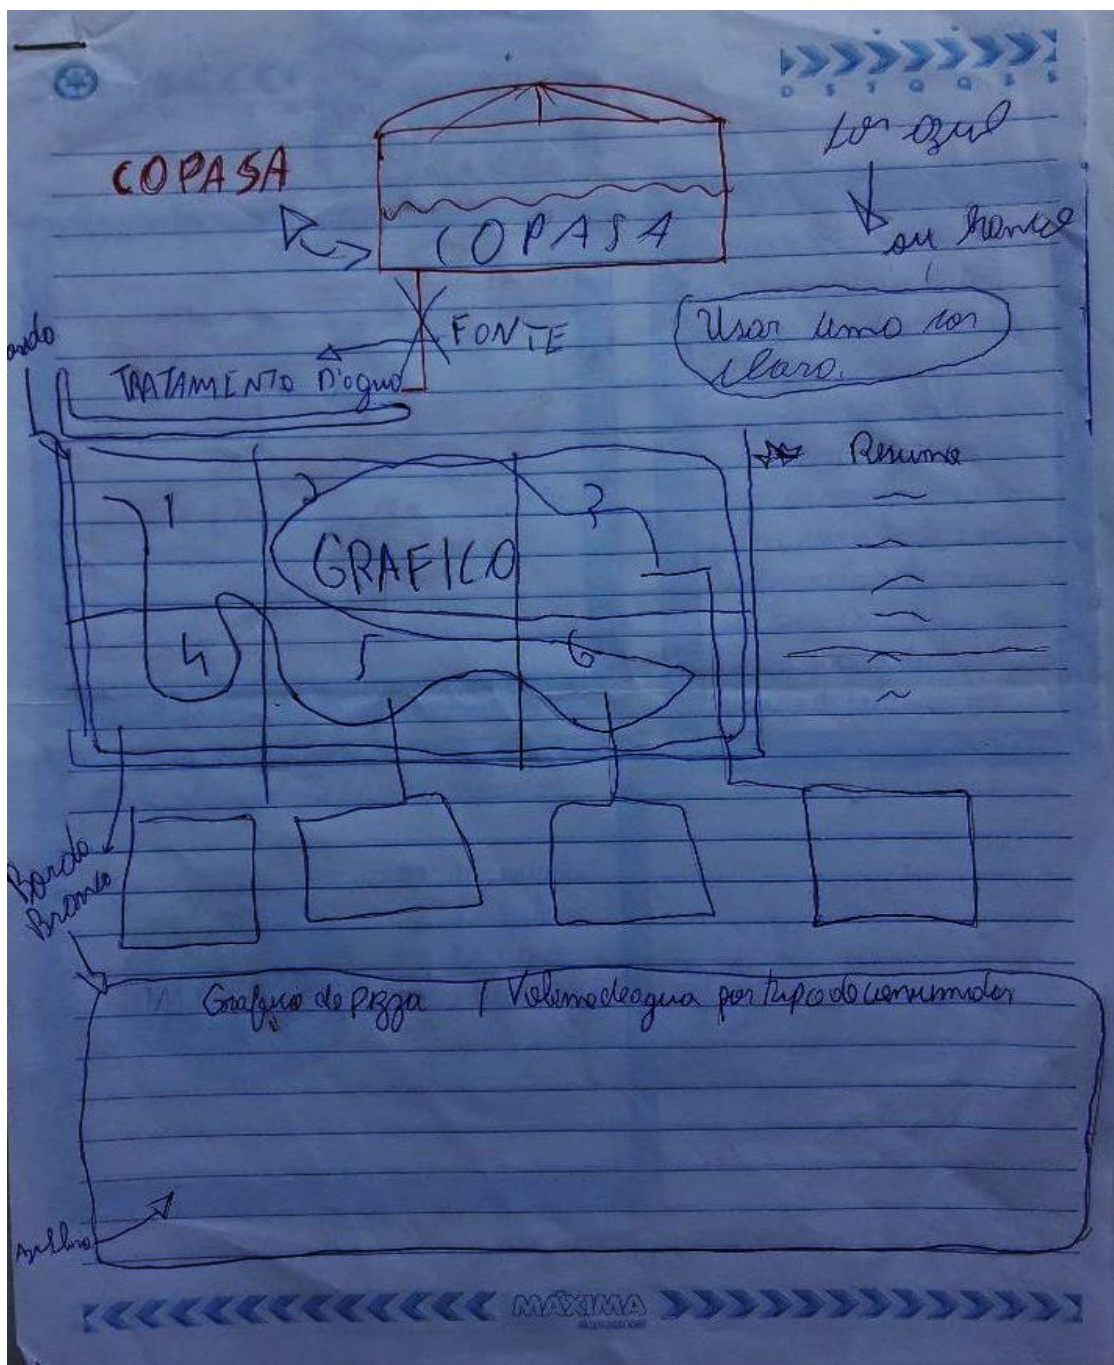 D S T Q Q S S
Cor azul
COPASA
COPASA
ou branco
FONTE
Usar uma cor
clara.
TRATAMENTO D'agua
Resumo
1
2
3
GRAFICO
4
5
6
Borda
Branco
Grafico de pizza / Volume de agua por tipo de consumidor
MÁXIMA